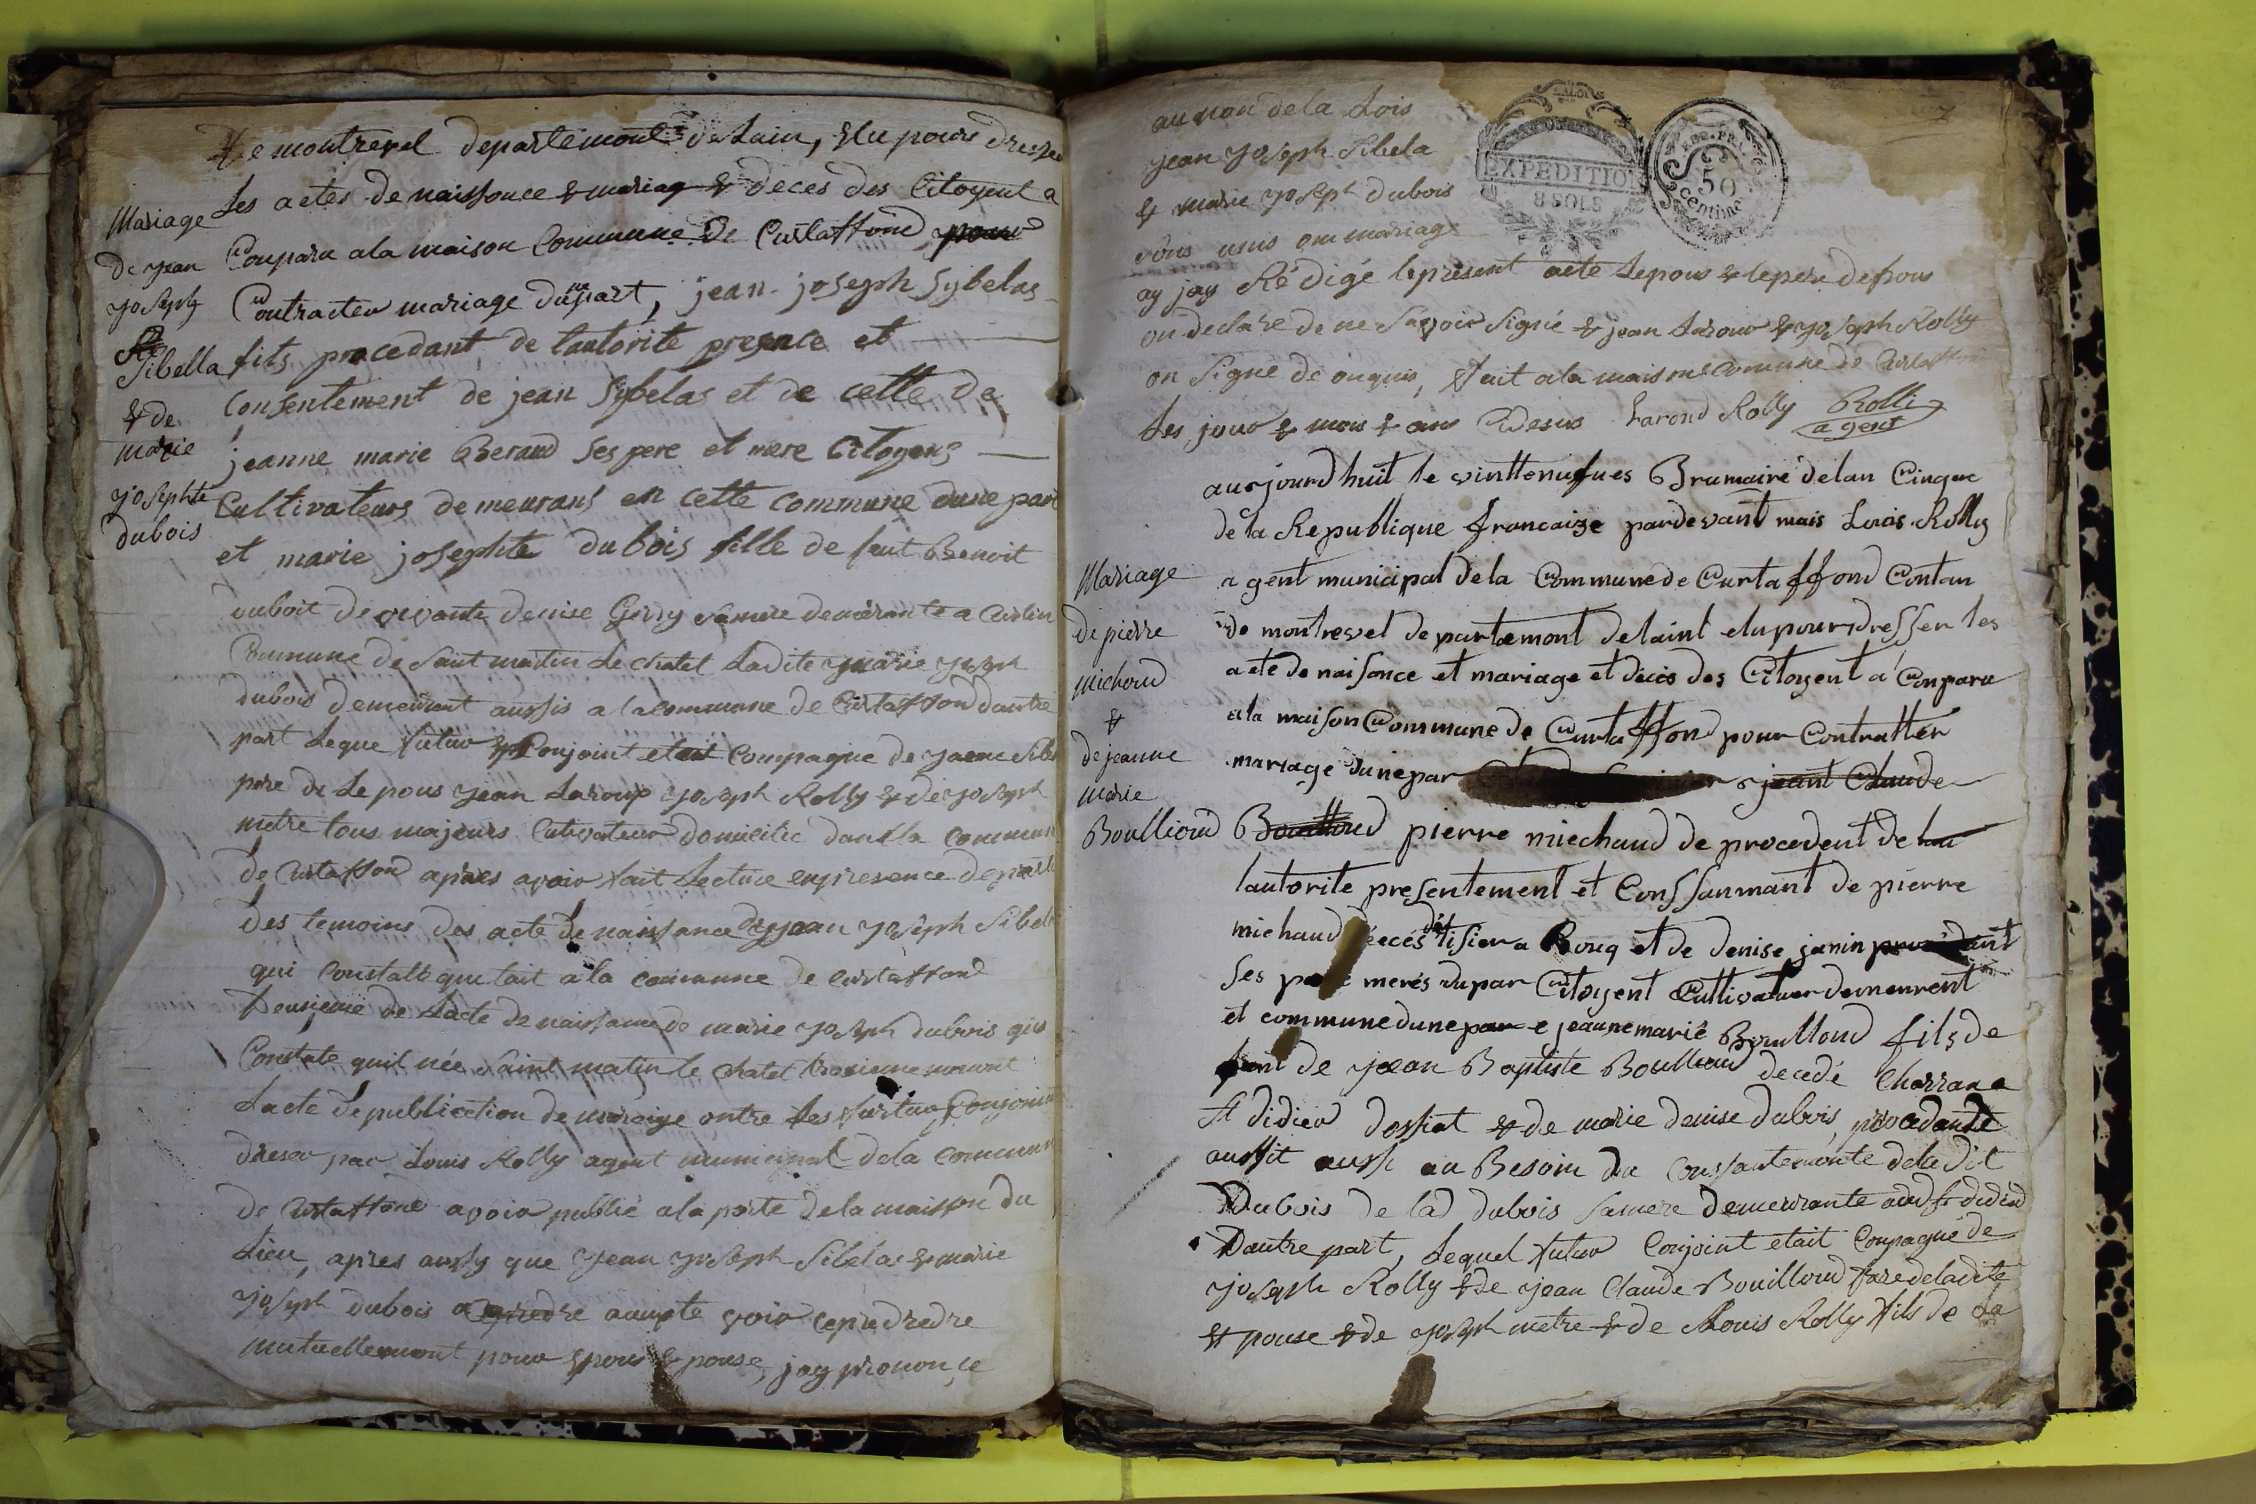 De montrevel departement de Lain, Elu pour dresser
Les actes de naissance & mariag & deces des Citoyent a
Conparu a la maison Commune De Curtaffond pour
Contracter mariage dunepart, jean joseph Sybelas
fils procedant de lautorite presence et
Consentement de jean Sybelas et de cette de
jeanne marie Beraud Ses pere et mere Citoyens
Cultivateurs demeurans en cette commune dune part
et marie josephte dubois fille de feut Benoit
duboit de vivante denise sa mere demeurante a
Commune de Saint martin Le chatel Ladite marie joseph
dubois demeurant aussis a la commune de Curtaffond dautre
part Leque futur Conjoint etait Compagne de
pere de Lepous jean Laroup joseph Rolly & de joseph
metre tous majeurs Cultivateur domicilie dans la commun
de Curtaffond apres avoir fait Lecture en presence de
des temoins des acte de naissance de jean joseph Sibel
qui Constate que fait a la commune de curtaffond
deusieme de Lacte de naissance de marie joseph dubois qui
Constate quil née Saint matin le chatel
Lacte de publication de mariage entre Les futur Conjoin
dresser par Louis Rolly agent municipal de la Commun
de Curtaffond avoir publié a la porte de la maison du
Lieu, apres aussy que jean joseph Sibelas & marie
joseph dubois a voir
mutuellement pour Epous & pouse, jay prononce
Mariage
de jean
joseph
Sibella
& de
marie
josephte
dubois
au non de la Lois
jean joseph Sibela
& marie joseph dubois
sons unis om mariage
EXPEDITION
8 SOLS
REP. FRA.
50
Centime
ay jay Rédigé le present acte Lepous & le pere depous
on declare de ne Savoir Signé & jean Laroup & joseph Rolly
on Signé de , fait a la maison Comune de Curtaffon
Les, jour & mois & ans Cidesus Larond Rolly Rolli
agent
aurjourdhuit le vinttenufues Brumaire delan Cinque
de la Republique francaize pardevant mais Louis Rolly
agent municipal de la Commune de Curtaffond Contan
de montrevel departemont delaint elu pour dresser les
acte de naisance et mariage et deces des Citoyent a Conparu
ala maison Commune de Curtaffond pour Contratter
mariage dunepar jeant Claude
Bouilloud pierre miechaud de procedent de lau
lautorite presentement et Conssanmant de pierre
michaud decés a Bourg et de denise janin
Ses pere merés dupar Citoyent Cultivateur demeurent
et commune dune par e jeannemarie Bouilloud fils de
feut de jean Baptiste Boullioud decedé a
St didier dossiat & de marie denise dubois, procedante
aussit aussi au Besoin du Conssantemonte dela dit
Dubois de lad dubois Samere demeurante aud St didier
Dautre part, Lequel futur Conjoint etait Compagné de
joseph Rolly & de jean Claude Bouilloud fare deladite
& pouse & de joseph metre & de Louis Rolly fils de
Mariage
de pierre
michoud
&
de jeanne
marie
Boullioud